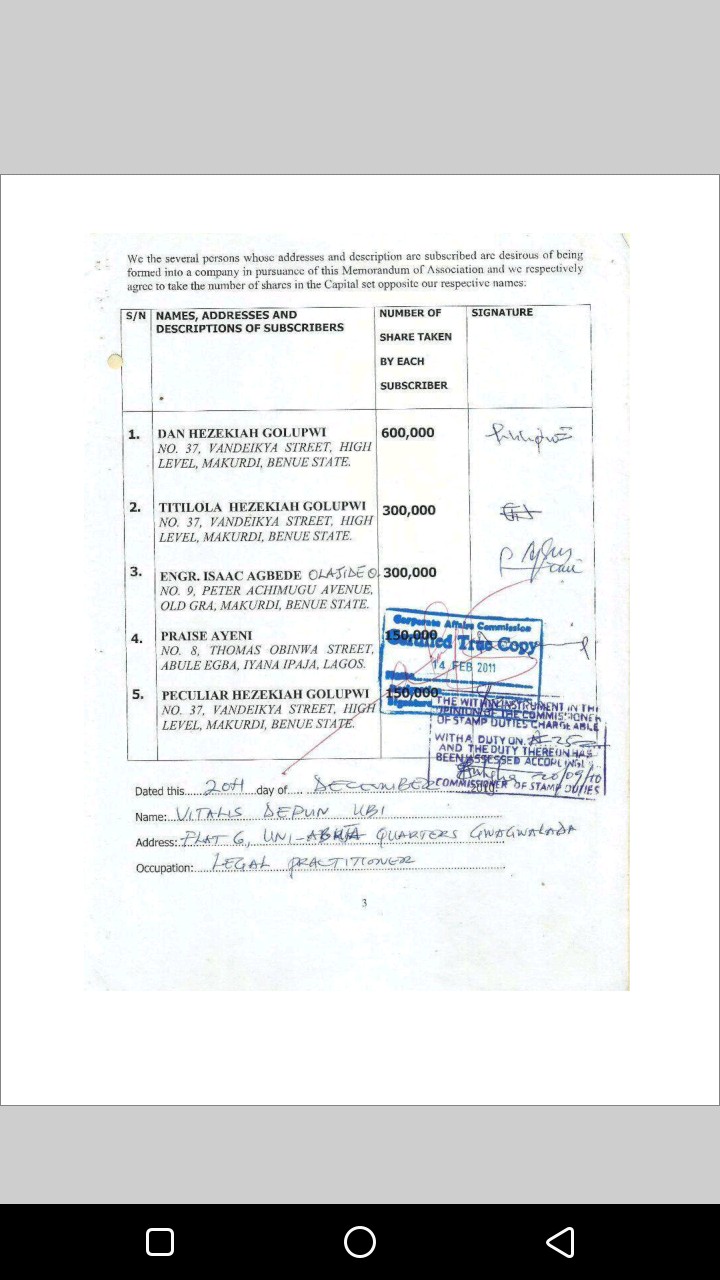 We the several persons whose addresses and description are subscribed are desirous of being
formed into a company in pursuance of this Memorandum of Association and we respectively
agree to take the number of shares in the Capital set opposite our respective names:
S/N NAMES, ADDRESSES AND DESCRIPTIONS OF SUBSCRIBERS
NUMBER OF
SHARE TAKEN
BY EACH
SUBSCRIBER
SIGNATURE
1. DAN HEZEKIAH GOLUPWI 600,000
NO. 37, VANDEIKYA STREET, HIGH
LEVEL, MAKURDI, BENUE STATE.
2. TITILOLA HEZEKIAH GOLUPWI 300,000
NO. 37, VANDEIKYA STREET, HIGH
LEVEL, MAKURDI, BENUE STATE.
3. ENGR. ISAAC AGBEDE OLAJIDE O. 300,000
NO. 9, PETER ACHIMUGU AVENUE,
OLD GRA, MAKURDI, BENUE STATE.
4. PRAISE AYENI 150,000
NO. 8, THOMAS OBINWA STREET,
ABULE EGBA, IYANA IPAJA, LAGOS.
5. PECULIAR HEZEKIAH GOLUPWI 150,000
NO. 37, VANDEIKYA STREET, HIGH
LEVEL, MAKURDI, BENUE STATE.
Corporate Affairs Commission
Certified True Copy
14 FEB 2011
Name
Signature
THE WITHIN INSTRUMENT IN THE
OPINION OF THE COMMISSIONER
OF STAMP DUTIES CHARGEABLE
WITH A DUTY ON 25
AND THE DUTY THEREON HAS
BEEN ASSESSED ACCORDINGLY
20/09/10
COMMISSIONER OF STAMP DUTIES
Dated this 20th day of DECEMBER 2010
Name: VITALIS DEPUN UBI
Address: FLAT 6, UNI-ABUJA QUARTERS GWAGWALADA
Occupation: LEGAL PRACTITIONER
3